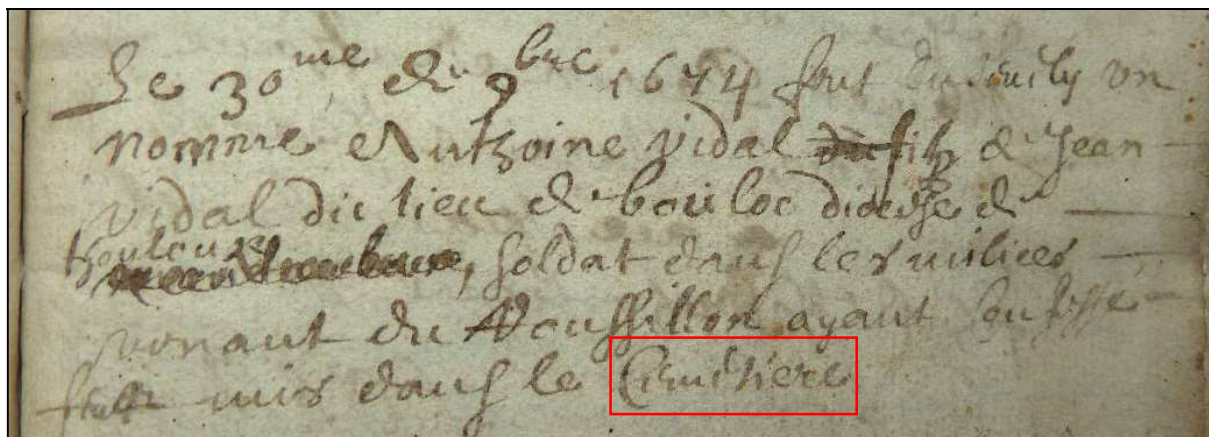 Le 30me de 9bre 1674 fout Ensevely un
nomme Anthoine vidal filz de Jean
vidal du lieu de bouloc dioceze de
thoulouse, soldat dans les milices
venant du Roussillon ayant
mis dans le Cimetiere